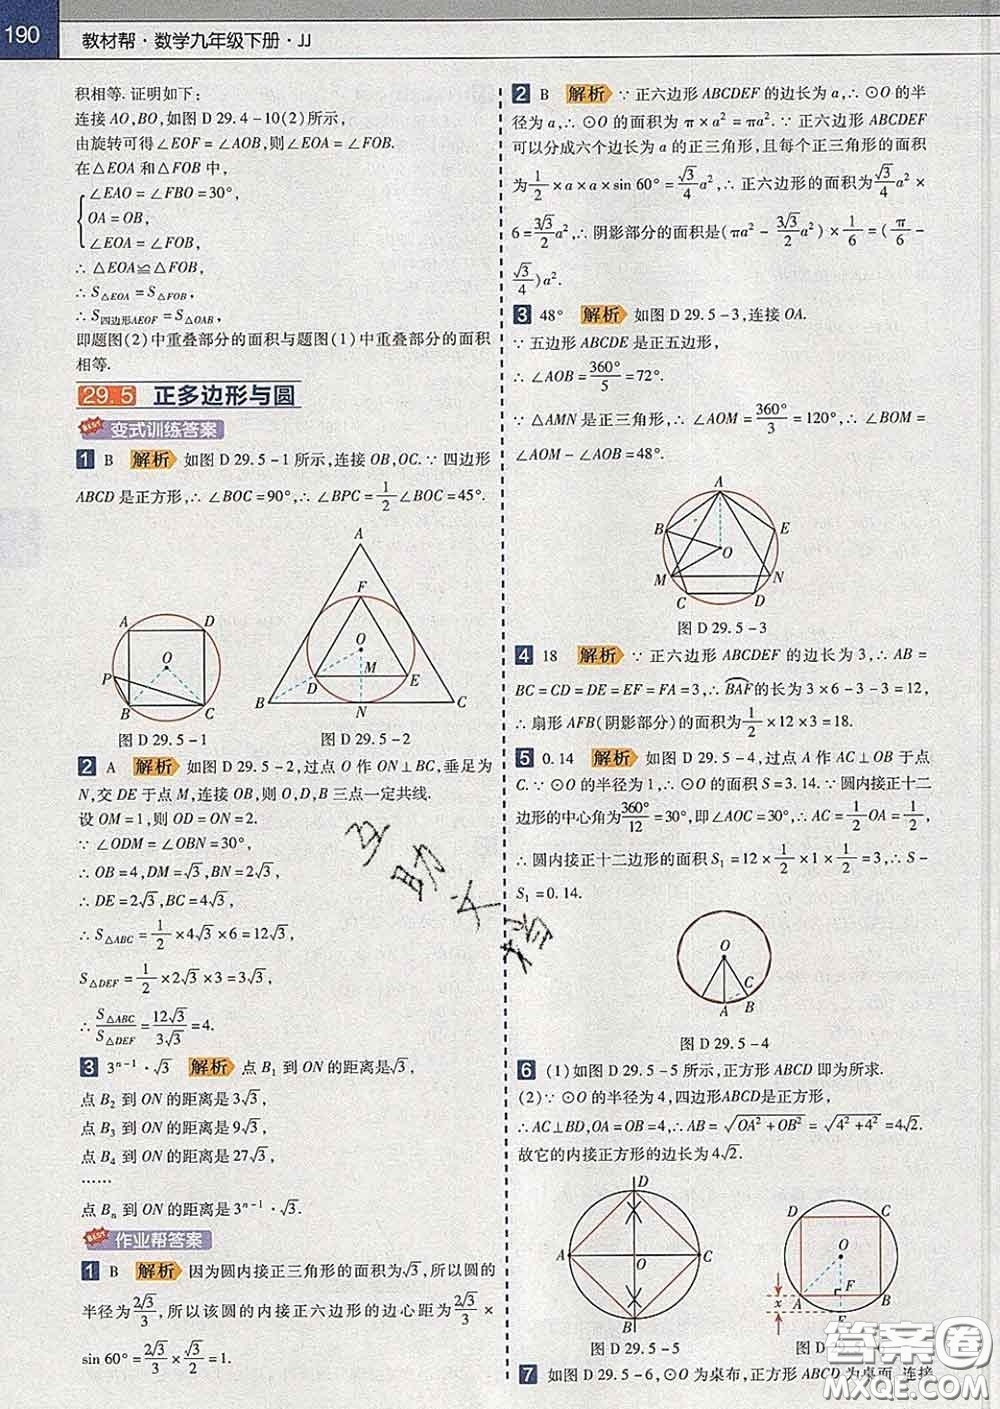 190
教材帮·数学九年级下册·JJ
积相等. 证明如下:
连接 AO,BO,如图 D 29.4-10(2)所示,
由旋转可得∠EOF = ∠AOB,则∠EOA = ∠FOB.
在△EOA 和△FOB 中,
∠EAO = ∠FBO = 30°,
OA = OB,
∠EOA = ∠FOB,
∴ △EOA≌△FOB,
∴ S△EOA = S△FOB,
∴ S四边形AEOF = S△OAB,
即题图(2)中重叠部分的面积与题图(1)中重叠部分的面积
相等.
29.5 正多边形与圆
BEST 变式训练答案
1 B 解析 如图 D 29.5-1 所示,连接 OB,OC. ∵ 四边形
ABCD 是正方形,∴ ∠BOC = 90°,∴ ∠BPC = 1/2 ∠BOC = 45°.
A D O P B C
图 D 29.5-1
A F O M D E B N C
图 D 29.5-2
2 A 解析 如图 D 29.5-2,过点 O 作 ON⊥BC,垂足为
N,交 DE 于点 M,连接 OB,则 O,D,B 三点一定共线.
设 OM = 1,则 OD = ON = 2.
∵ ∠ODM = ∠OBN = 30°,
∴ OB = 4,DM = √3,BN = 2√3,
∴ DE = 2√3,BC = 4√3,
∴ S△ABC = 1/2 × 4√3 × 6 = 12√3,
S△DEF = 1/2 × 2√3 × 3 = 3√3,
∴ S△ABC/S△DEF = 12√3/3√3 = 4.
3 3ⁿ⁻¹·√3 解析 点 B₁ 到 ON 的距离是√3,
点 B₂ 到 ON 的距离是 3√3,
点 B₃ 到 ON 的距离是 9√3,
点 B₄ 到 ON 的距离是 27√3,
……
点 Bₙ 到 ON 的距离是 3ⁿ⁻¹·√3.
BEST 作业帮答案
1 B 解析 因为圆内接正三角形的面积为√3,所以圆的
半径为2√3/3,所以该圆的内接正六边形的边心距为2√3/3 ×
sin 60° = 2√3/3 × √3/2 = 1.
2 B 解析 ∵ 正六边形 ABCDEF 的边长为 a,∴ ⊙O 的半
径为 a,∴ ⊙O 的面积为 π × a² = πa². ∵ 正六边形 ABCDEF
可以分成六个边长为 a 的正三角形,且每个正三角形的面积
为1/2 × a × a × sin 60° = √3/4 a²,∴ 正六边形的面积为√3/4 a² ×
6 = 3√3/2 a²,∴ 阴影部分的面积是(πa² - 3√3/2 a²) × 1/6 = (π/6 -
√3/4)a².
3 48° 解析 如图 D 29.5-3,连接 OA.
∵ 五边形 ABCDE 是正五边形,
∴ ∠AOB = 360°/5 = 72°.
∵ △AMN 是正三角形,∴ ∠AOM = 360°/3 = 120°,∴ ∠BOM =
∠AOM - ∠AOB = 48°.
A B E O M N C D
图 D 29.5-3
4 18 解析 ∵ 正六边形 ABCDEF 的边长为 3,∴ AB =
BC = CD = DE = EF = FA = 3,∴ BAF的长为 3 × 6 - 3 - 3 = 12,
∴ 扇形 AFB(阴影部分)的面积为1/2 × 12 × 3 = 18.
5 0.14 解析 如图 D 29.5-4,过点 A 作 AC⊥OB 于点
C. ∵ ⊙O 的半径为 1,∴ ⊙O 的面积 S = 3.14. ∵ 圆内接正十二
边形的中心角为360°/12 = 30°,即∠AOC = 30°,∴ AC = 1/2 OA = 1/2,
∴ 圆内接正十二边形的面积 S₁ = 12 × 1/2 × 1 × 1/2 = 3,∴ S -
S₁ = 0.14.
O C A B
图 D 29.5-4
6 (1)如图 D 29.5-5 所示,正方形 ABCD 即为所求.
(2)∵ ⊙O 的半径为 4,四边形ABCD是正方形,
∴ AC⊥BD,OA = OB = 4,∴ AB = √(OA² + OB²) = √(4² + 4²) = 4√2.
故它的内接正方形的边长为 4√2.
D A O C B
图 D 29.5-5
D C O F x A B E
7 如图 D 29.5-6,⊙O 为桌布,正方形 ABCD 为桌面,连接
答案圈
MXQE.COM